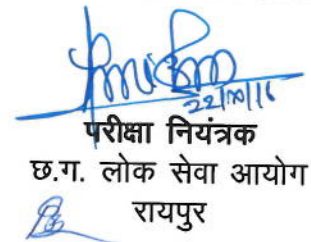 22/10/16
परीक्षा नियंत्रक
छ.ग. लोक सेवा आयोग
रायपुर